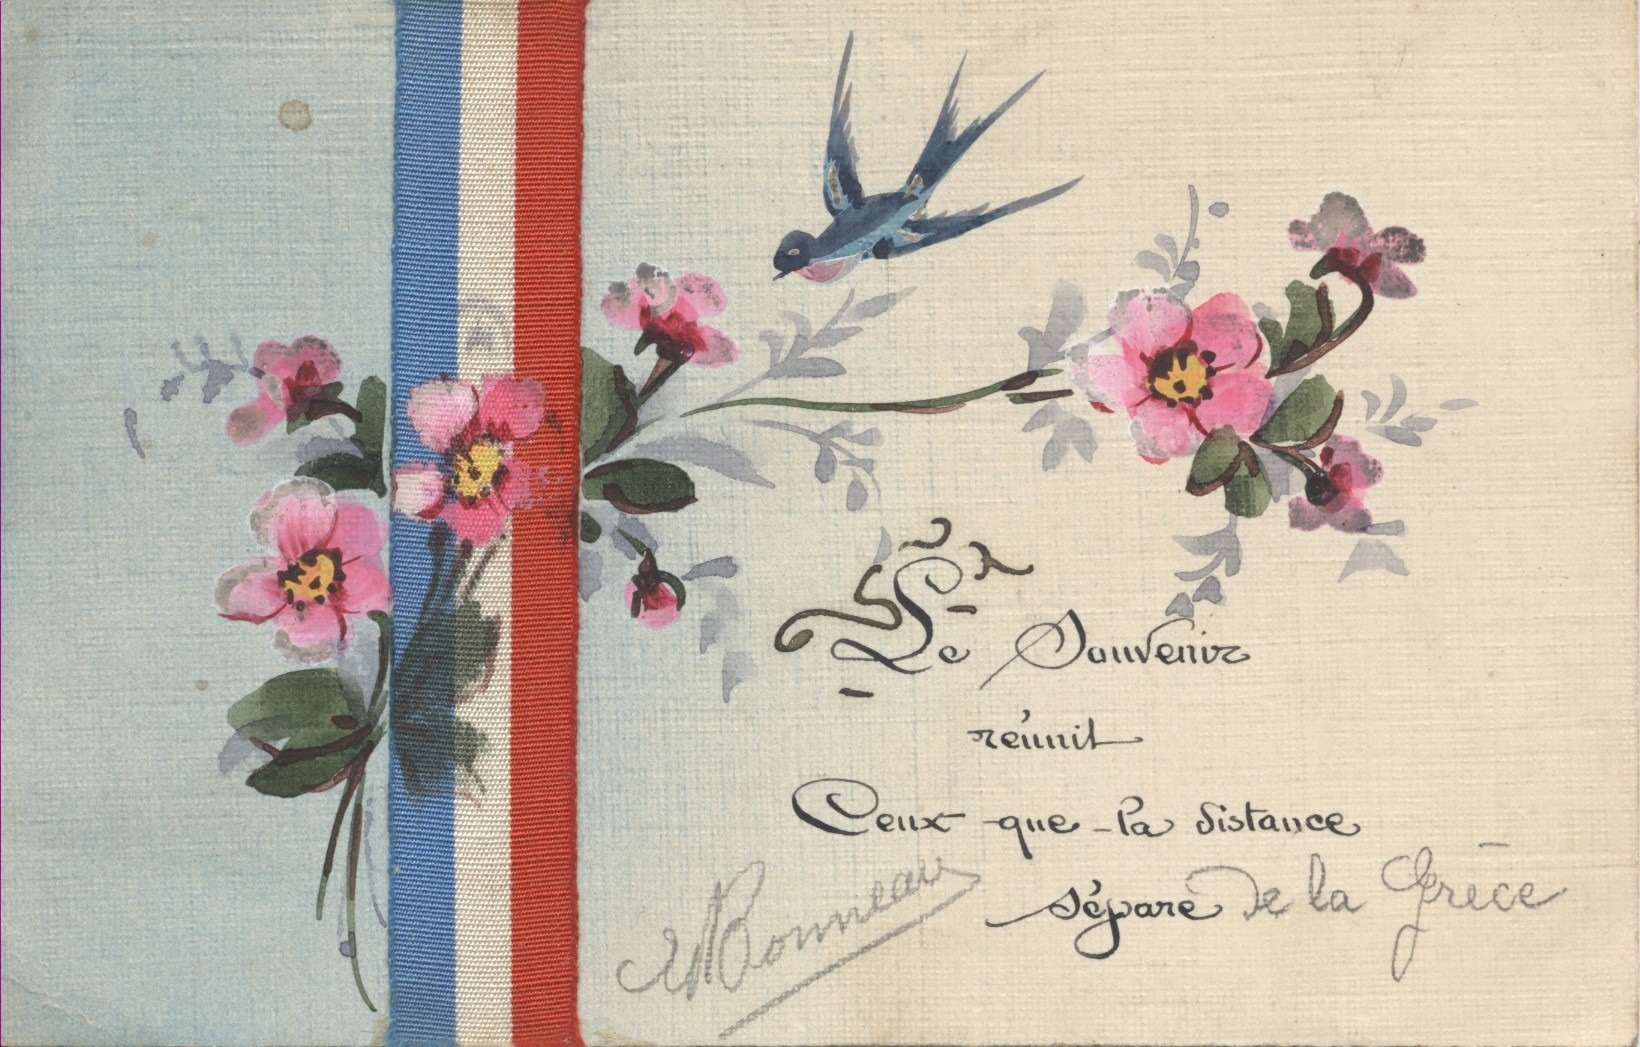 Le Souvenir
réunit
Ceux que la distance
séparé de la Grèce